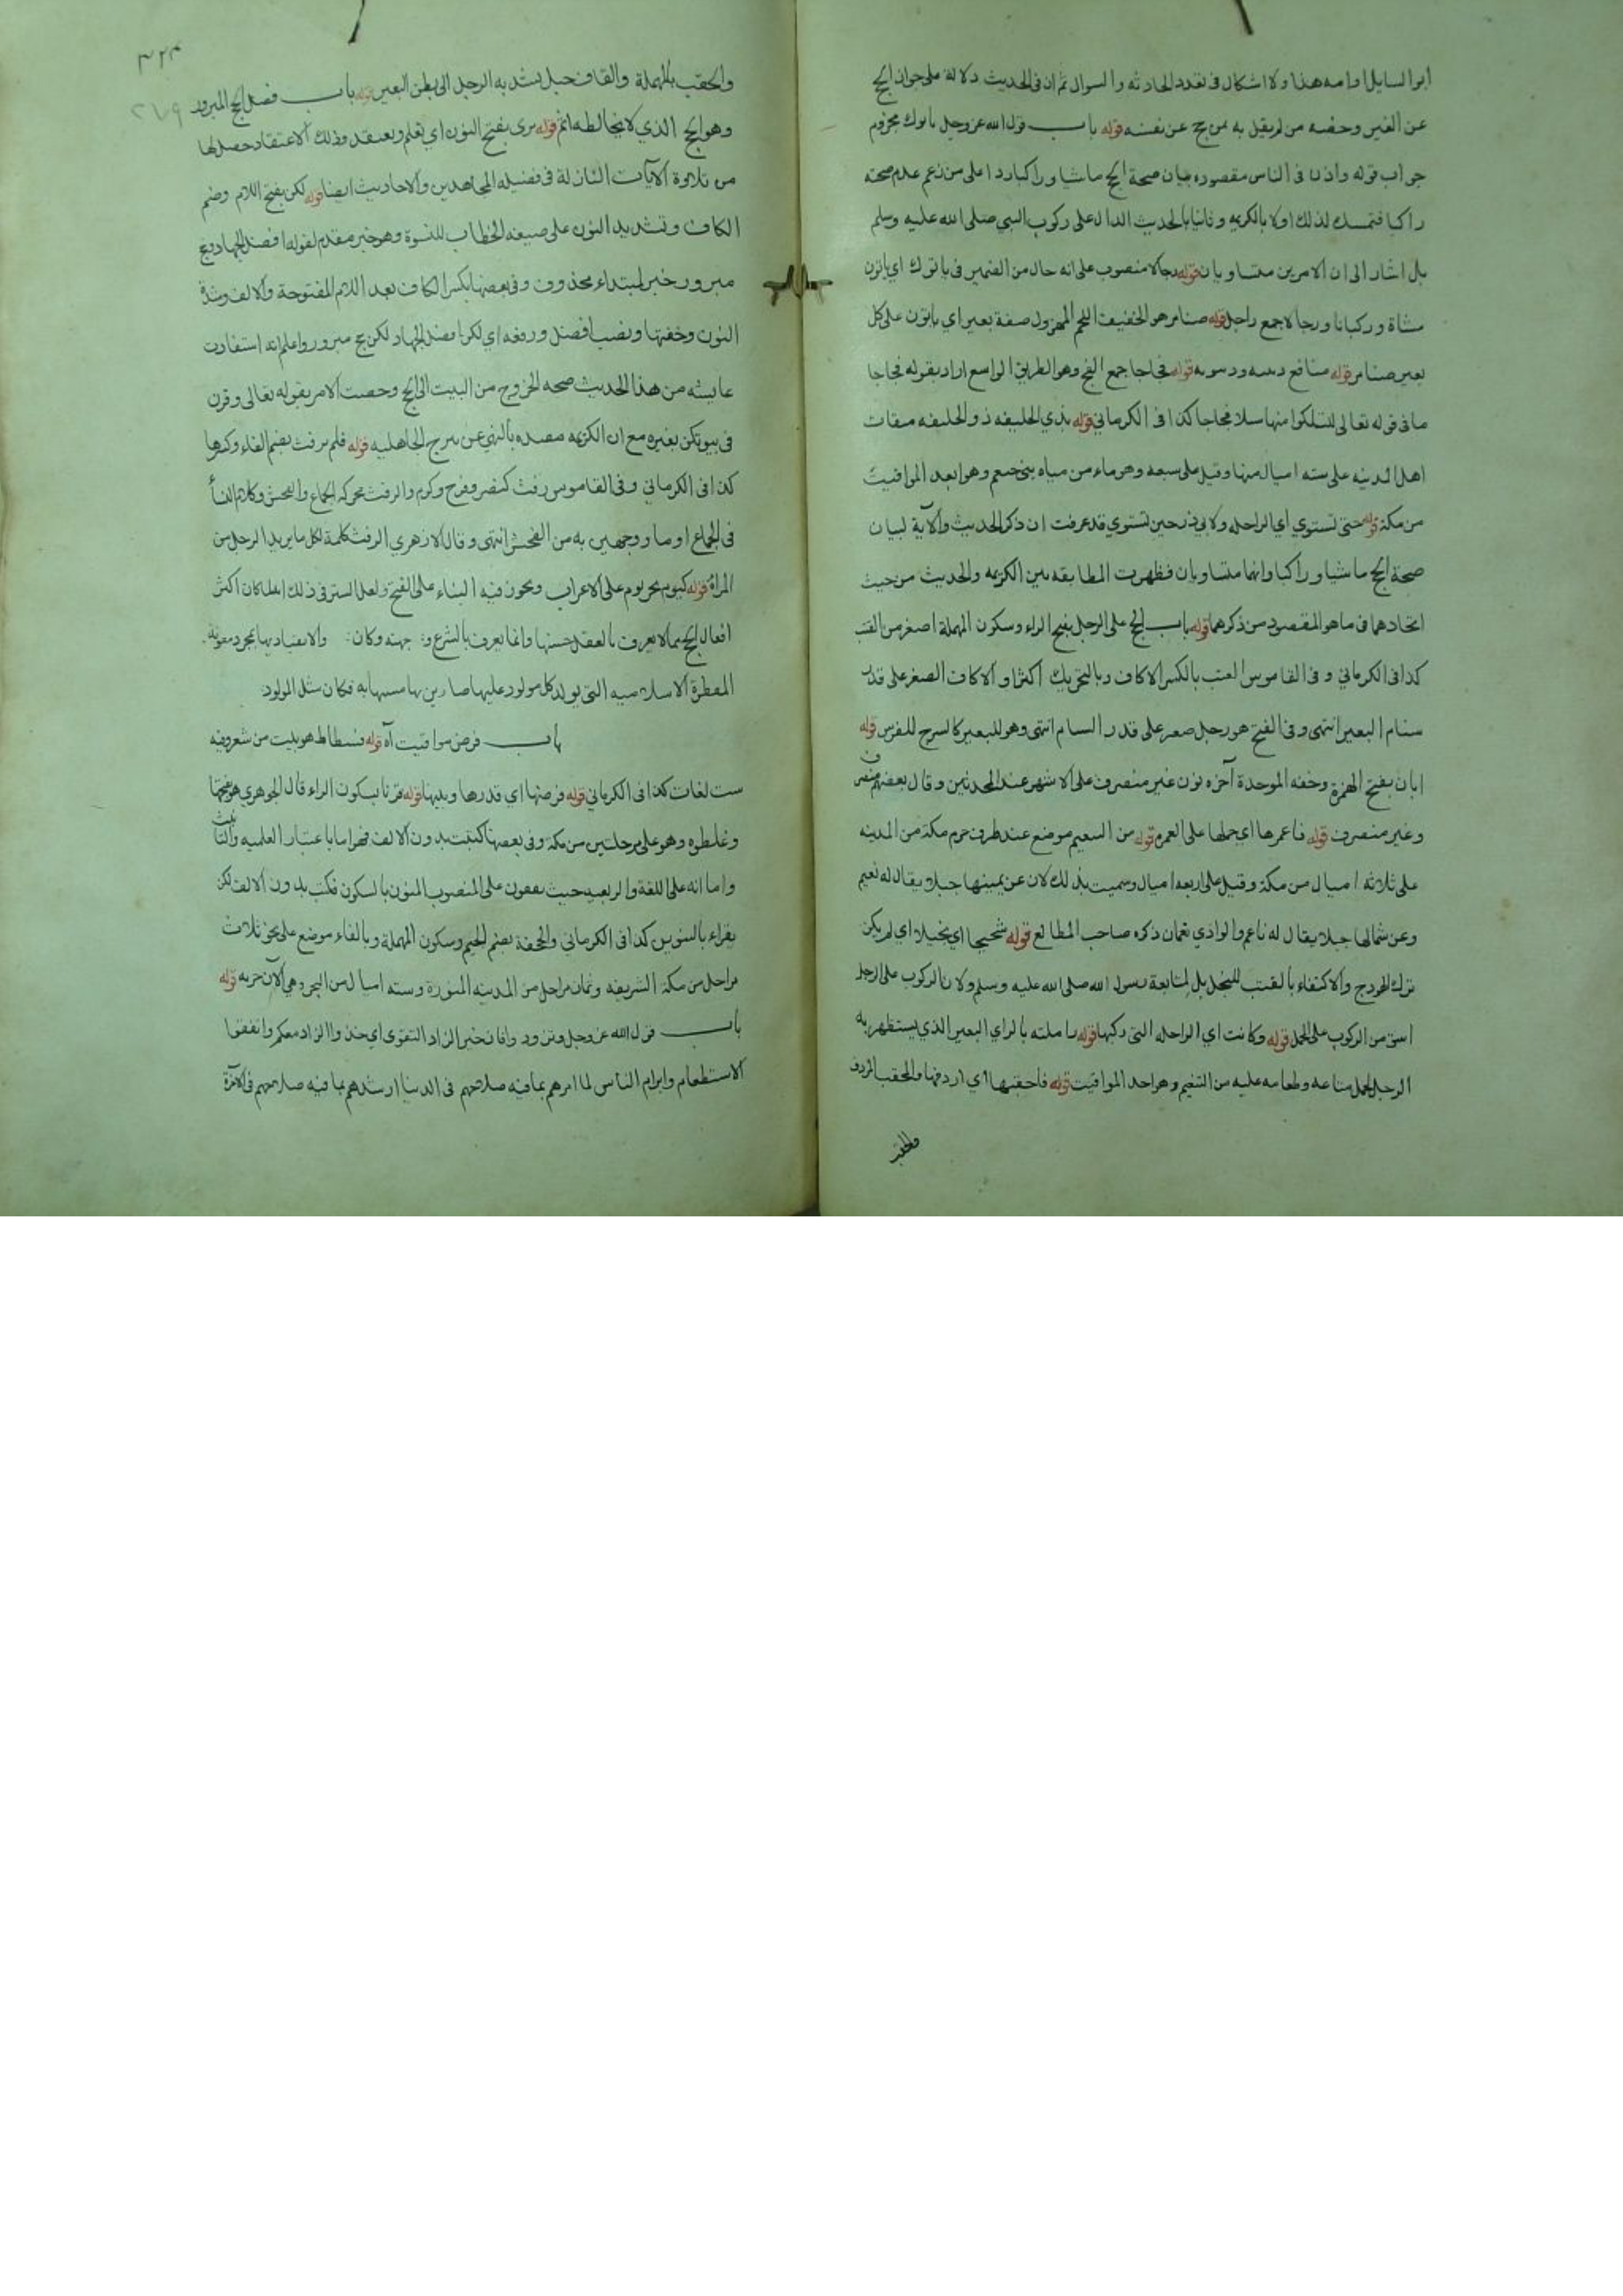 ابو السايل او امه هذا ولا اشكال فى تعدد الحادثه والسوال ثم ان فى الحديث دلالة على جواز الحج
عن الغير وخصه من لم يقبل به بمن حج عن نفسه قوله باب قول الله عز وجل ياتوك مجزوم
جواب قوله واذن فى الناس مقصوده بيان صحة الحج ماشيا وراكبا ردا على من زعم عدم صحته
راكبا فتمسك لذلك اولا بالكريمه وثانيا بالحديث الدال على ركوب النبي صلى الله عليه وسلم
بل اشار الى ان الامرين متساويان قوله رجالا منصوب على انه حال من الضمير فى ياتوك اي ياتون
مشاة وركبانا ورجالا جمع راجل قوله ضامر هو الخفيف اللحم المهزول صفة بعير اي ياتون على كل
بعير ضامر قوله منافع دينيه ودنيويه قوله فجاجا جمع الفج وهو الطريق الواسع اراد بقوله فجاجا
ما فى قوله تعالى لتسلكوا منها سبلا فجاجا كذا فى الكرماني قوله بذي الحليفه ذو الحليفه ميقات
اهل المدينه على سته اميال منها وقيل على سبعه وهو ماء من مياه بني جشم وهو ابعد المواقيت
من مكة قوله حتى تستوي اي الراحله ولابي ذر حين تستوي قد عرفت ان ذكر الحديث والآية لبيان
صحة الحج ماشيا وراكبا وانهما متساويان فظهرت المطابقه بين الكريمه والحديث من حيث
اتحادهما فى ما هو المقصود من ذكرهما قوله باب الحج على الرحل بفتح الراء وسكون المهملة اصغر من القتب
كذا فى الكرماني وفى القاموس القتب بالكسر الاكاف وبالتحريك اكثر او الاكاف الصغير على قدر
سنام البعير انتهى وفى الفتح هو رحل صغير على قدر السنام انتهى وهو للبعير كالسرج للفرس قوله
ابان بفتح الهمزة وخفه الموحدة آخره نون غير منصرف على الاشهر عند المحدثين وقال بعضهم منصرف
وغير منصرف قوله فاعمرها اي حملها على العمرة قوله من التنعيم موضع عند طرف حرم مكة من المدينه
على ثلاثه اميال من مكة وقيل على اربعه اميال وسميت بذلك لان عن يمينها جبلا يقال له نعيم
وعن شمالها جبلا يقال له ناعم والوادي نعمان ذكره صاحب المطالع قوله شحيحا اي بخيلا اي لم يكن
ترك الهودج والاكتفاء بالقتب للبخل بل لمتابعة رسول الله صلى الله عليه وسلم ولان الركوب على الرحل
اشق من الركوب على المحمل قوله وكانت اي الراحله التى ركبها قوله زاملته بالزاي البعير الذي يستظهر به
الرجل لحمل متاعه وطعامه عليه من التنعيم وهو احد المواقيت قوله فاحقبها اي اردفها والمحقب المردف
والحقب
٣٢٣
٢١٠٩
والحقب بالمهملة والقاف حبل يشد به الرحل الى بطن البعير قوله باب فضل الحج المبرور
وهو الحج الذي لا يخالطه اثم قوله نرى بفتح النون اي نعلم ونعتقد وذلك الاعتقاد حصل لها
من تلاوة الآيات النازلة فى فضيله المجاهدين والاحاديث ايضا قوله لكن بفتح اللام وضم
الكاف وتشديد النون على صيغه الخطاب للنسوة وهو خبر مقدم لقوله افضل الجهاد وحج
مبرور خبر لمبتداء محذوف وفى بعضها بكسر الكاف بعد اللام المفتوحة والالف وشدة
النون وخفتها ونصب افضل ورفعه اي لكن افضل الجهاد لكن حج مبرور واعلم انه استفادت
عايشه من هذا الحديث صحه الخروج من البيت الى الحج وخصت الامر بقوله تعالى وقرن
فى بيوتكن بغيره مع ان الكريمه مقيده بالنهي عن تبرج الجاهليه قوله فلم يرفث بضم الفاء وكسرها
كذا فى الكرماني وفى القاموس رفث كنصر وفرح وكرم والرفث محركه الجماع والفحش وكلام النساء
فى الجماع او ما روجعهن به من الفحش انتهى وقال الازهري الرفث كلمة لكل ما يريد الرجل من
المراة قوله كيوم بجر يوم على الاعراب ويجوز فيه البناء على الفتح ولعل السر فى ذلك انه لما كان اكثر
افعال الحج مما لا يعرف بالعقل حسنها وانما يعرف بالشرع و جهته وكان والانقياد بها بمجرد معونة
الفطرة الاسلاميه التى يولد كل مولود عليها صار بها مشبها به فكان مثل المولود
باب فرض مواقيت آه قوله فسطاط هو بيت من شعر وفيه
ست لغات كذا فى الكرماني قوله فرضها اي قدرها وبينها قوله قرنا بسكون الراء قال الجوهري هو بفتحها
وغلطوه وهو على مرحلتين من مكة وفى بعضها كتبت بدون الالف فهو اما باعتبار العلميه والتانيث
واما انه على اللغة الربعيه حيث يقفون على المنصوب المنون بالسكون فكتب بدون الالف لكن
يقراء بالتنوين كذا فى الكرماني والجحفة بضم الجيم وسكون المهملة وبالفاء موضع على نحو ثلاث
مراحل من مكة الشريفه وثمان مراحل من المدينه المنورة وسته اميال من البحر وهي الآن خربه قوله
باب قول الله عز وجل وتزودوا فان خير الزاد التقوى اي خذوا الزاد معكم واتقوا
الاستطعام وابرام الناس لما امرهم بما فيه صلاحهم فى الدنيا ارشدهم بما فيه صلاحهم فى الآخرة